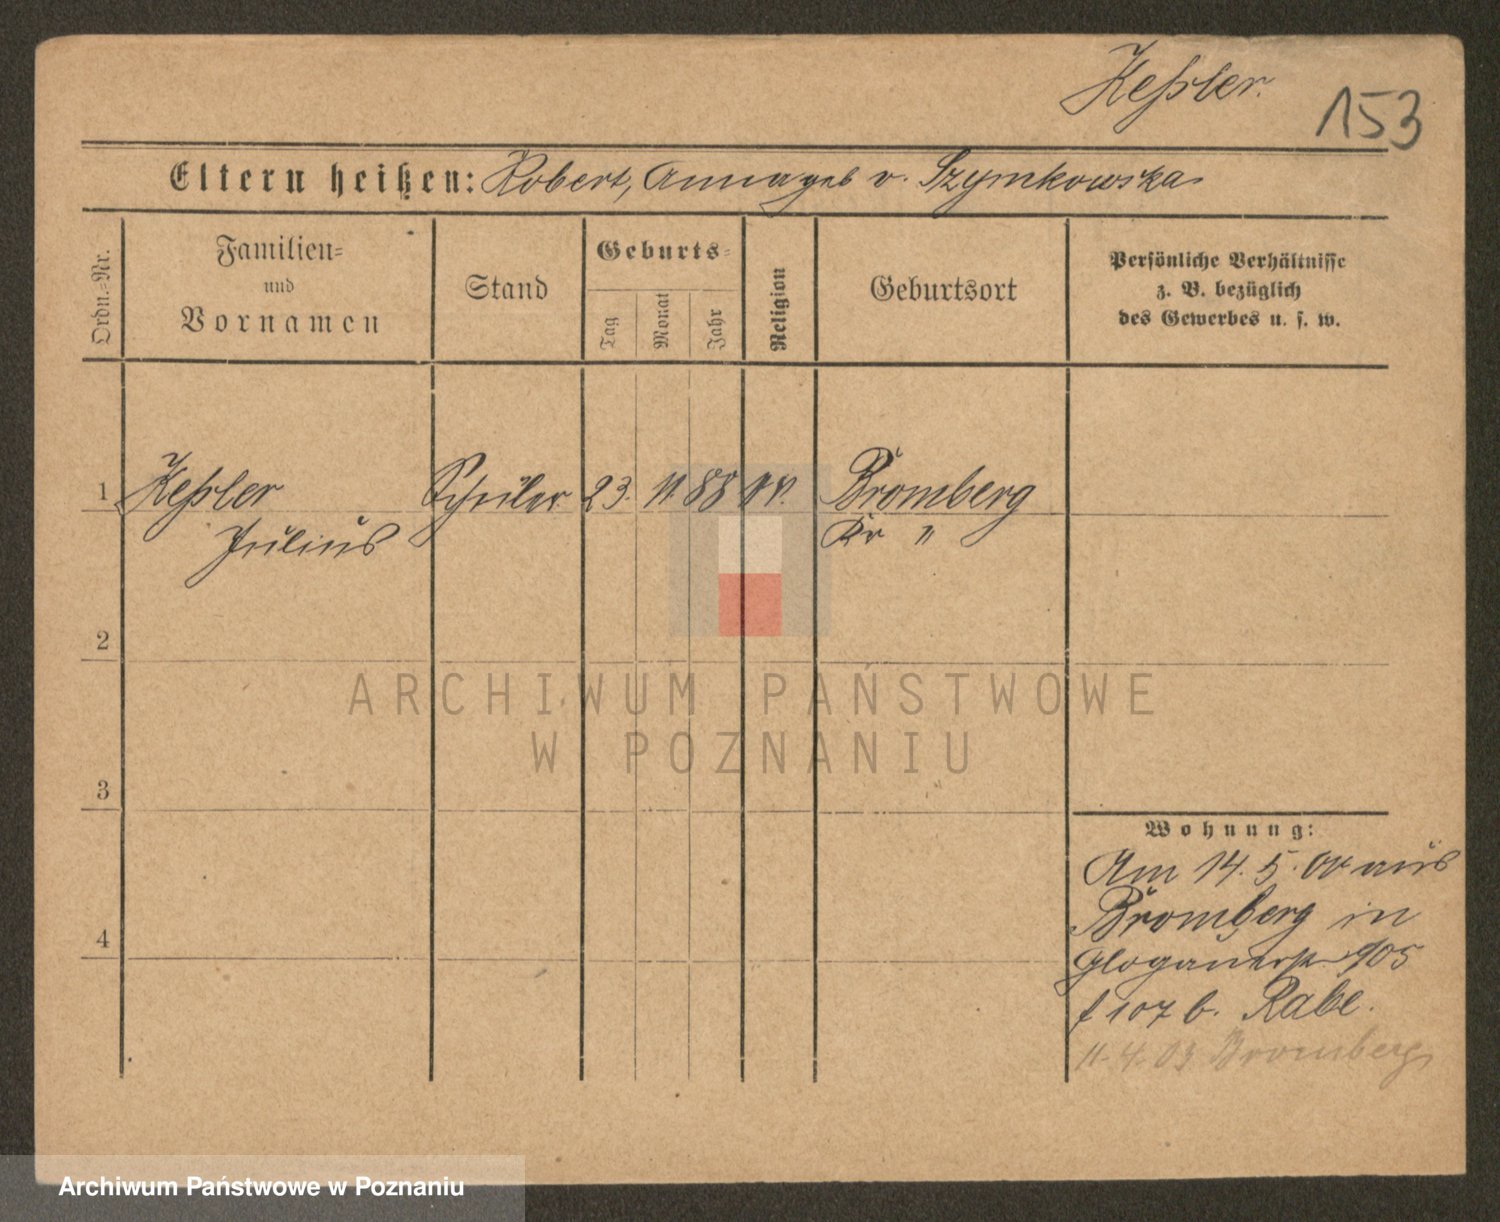 Keßler.
153
Eltern heißen: Robert, Anna geb v. Szymkowska
Ordn.=Nr.
Familien=
und
Vornamen
Stand
Geburts=
Tag
Monat
Jahr
Religion
Geburtsort
Persönliche Verhältnisse
z. B. bezüglich
des Gewerbes u. s. w.
1 Keßler Schüler 23. 11. 88 Bromberg
Julius Kr "
2
3
4
Wohnung:
Am 14. 5. 00 aus
Bromberg in
Glogauerstr 105
f 107 b. Rabe.
11. 4. 03 Bromberg
ARCHIWUM PAŃSTWOWE
W POZNANIU
Archiwum Państwowe w Poznaniu